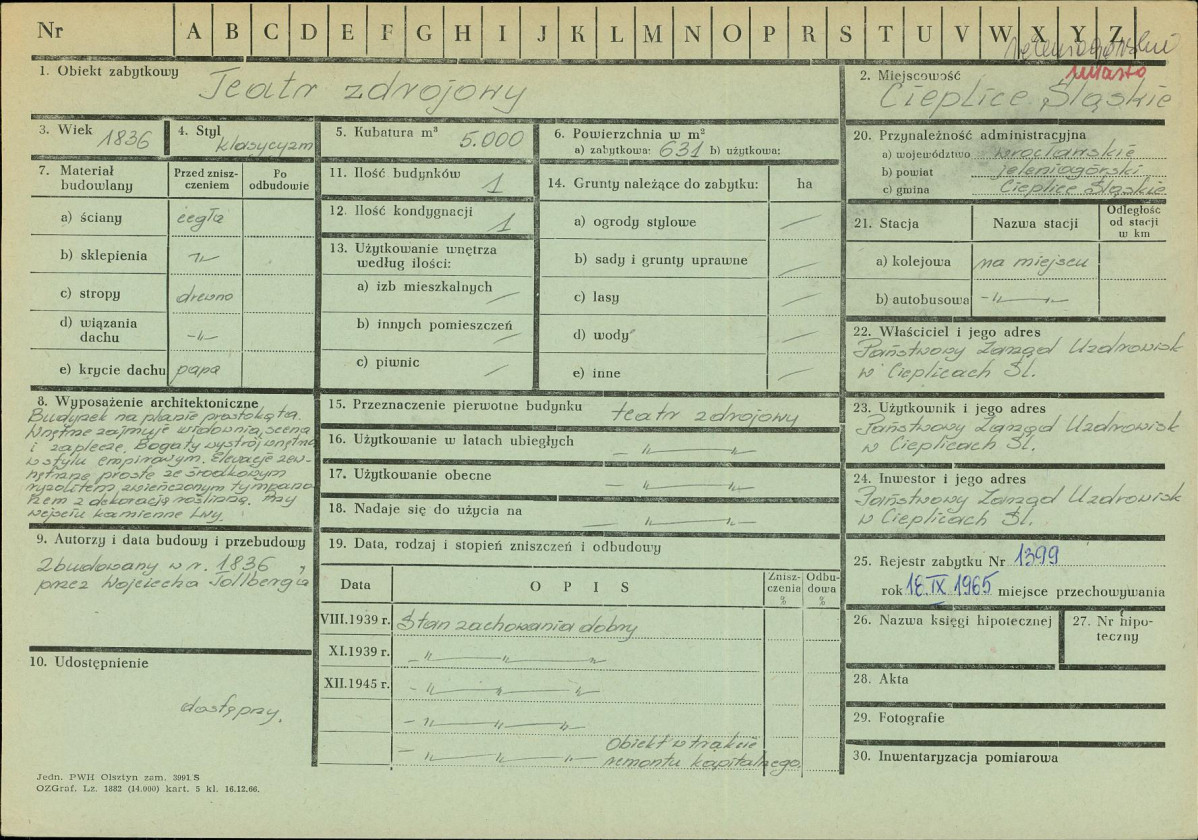 Nr A B C D E F G H I J K L M N O P R S T U V W X Y Z
miasto
1. Obiekt zabytkowy Teatr zdrojowy
2. Miejscowość
Cieplice Śląskie
3. Wiek 1836
4. Styl klasycyzm
5. Kubatura m³ 5.000
6. Powierzchnia w m²
a) zabytkowa: 631 b) użytkowa:
7. Materiał budowlany
Przed zniszczeniem
Po odbudowie
a) ściany cegła
b) sklepienia -"-
c) stropy drewno
d) wiązania dachu -"-
e) krycie dachu papa
8. Wyposażenie architektoniczne
Budynek na planie prostokąta.
Wnętrze zajmuje widownia, scena
i zaplecze. Bogaty wystrój wnętrza
w stylu empirowym. Elewacje zew-
nętrzne proste ze środkowym
ryzalitem zwieńczonym tympano-
nem z dekoracją roślinną. Przy
wejściu kamienne lwy.
9. Autorzy i data budowy i przebudowy
Zbudowany w r. 1836,
przez Wojciecha Tollberga
10. Udostępnienie
dostępny.
11. Ilość budynków 1
12. Ilość kondygnacji 1
13. Użytkowanie wnętrza
według ilości:
a) izb mieszkalnych —
b) innych pomieszczeń —
c) piwnic —
14. Grunty należące do zabytku: ha
a) ogrody stylowe —
b) sady i grunty uprawne —
c) lasy —
d) wody —
e) inne —
15. Przeznaczenie pierwotne budynku teatr zdrojowy
16. Użytkowanie w latach ubiegłych -"-"-
17. Użytkowanie obecne -"-"-
18. Nadaje się do użycia na -"-"-
19. Data, rodzaj i stopień zniszczeń i odbudowy
Data O P I S Zniszczenia % Odbudowa %
VIII.1939 r. Stan zachowania dobry
XI.1939 r. -"-"-"-
XII.1945 r. -"-"-"-
-"-"-"-
-"-"-"- Obiekt w trakcie
remontu kapitalnego.
20. Przynależność administracyjna
a) województwo wrocławskie
b) powiat jeleniogórski
c) gmina Cieplice Śląskie
21. Stacja Nazwa stacji Odległość od stacji w km
a) kolejowa na miejscu
b) autobusowa -"-"-
22. Właściciel i jego adres
Państwowy Zarząd Uzdrowisk
w Cieplicach Śl.
23. Użytkownik i jego adres
Państwowy Zarząd Uzdrowisk
w Cieplicach Śl.
24. Inwestor i jego adres
Państwowy Zarząd Uzdrowisk
w Cieplicach Śl.
25. Rejestr zabytku Nr 1399
rok IX 1965 miejsce przechowywania
26. Nazwa księgi hipotecznej
27. Nr hipo-
teczny
28. Akta
29. Fotografie
30. Inwentaryzacja pomiarowa
Jedn. PWH Olsztyn zam. 3991/S
OZGraf. Lz. 1882 (14.000) kart. 5 kl. 16.12.66.